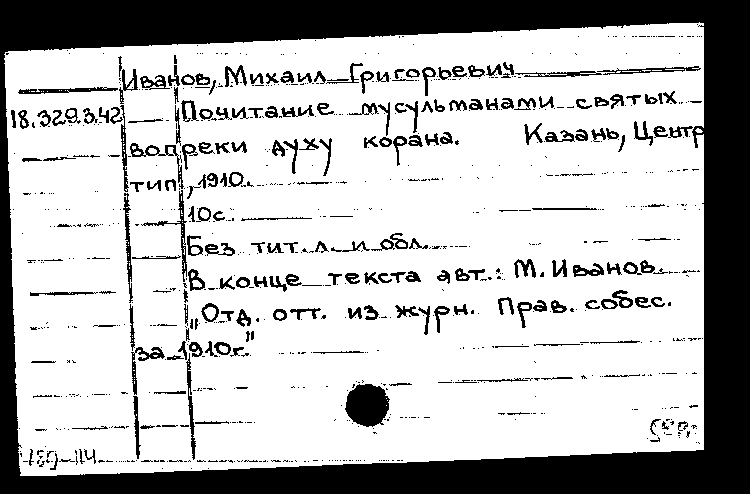 Иванов, Михаил Григорьевич
18.329.3.42 Почитание мусульманами святых
вопреки духу корана. Казань, Центр
тип, 1910.
10с.
Без тит. л. и обл.
В конце текста авт.: М. Иванов.
"Отд. отт. из журн. Прав. собес.
за 1910г."